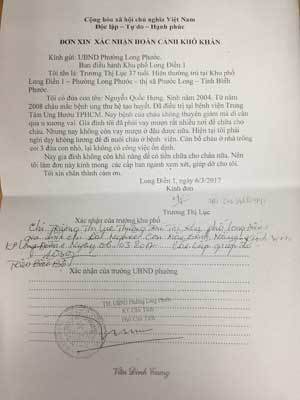 Cộng hòa xã hội chủ nghĩa Việt Nam
Độc lập – Tự do – Hạnh phúc
ĐƠN XIN XÁC NHẬN HOÀN CẢNH KHÓ KHĂN
Kính gửi: UBND Phường Long Phước.
Ban điều hành Khu phố Long Điền 1
Tôi tên là: Trương Thị Lục 37 tuổi. Hiện thường trú tại Khu phố
Long Điền 1 – Phường Long Phước – thị xã Phước Long – Tỉnh Bình
Phước.
Tôi có đứa con tên: Nguyễn Quốc Hưng. Sinh năm 2004. Từ năm
2008 cháu mắc bệnh ung thư hệ tạo huyết. Đã điều trị tại bệnh viện Trung
Tâm Ung Bướu TPHCM. Nay bệnh của cháu không thuyên giảm mà di căn
qua u xoang vai. Gia đình tôi đã phải vay mượn rất nhiều nơi để chữa cho
cháu. Nhưng nay không còn vay mượn ở đâu được nữa. Hiện tại tôi phải
nghỉ dạy không lương để đi nuôi cháu ở bệnh viện. Còn bố cháu ở nhà trông
coi 3 đứa con nhỏ, lại không có công việc ổn định.
Nay gia đình không còn khả năng để có tiền chữa cho cháu nữa. Nên
tôi làm đơn này kính mong các cấp ban ngành xem xét, giúp đỡ cho tôi.
Tôi xin chân thành cảm ơn.
Long Điền 1, ngày 6/3/2017
Kính đơn
Trương Thị Lục
Xác nhận của trưởng khu phố
Chị Trương Thị Lục Thường
Xác nhận của trưởng UBND phường
TM. UBND Phường Long Phước
Văn Đình Trung